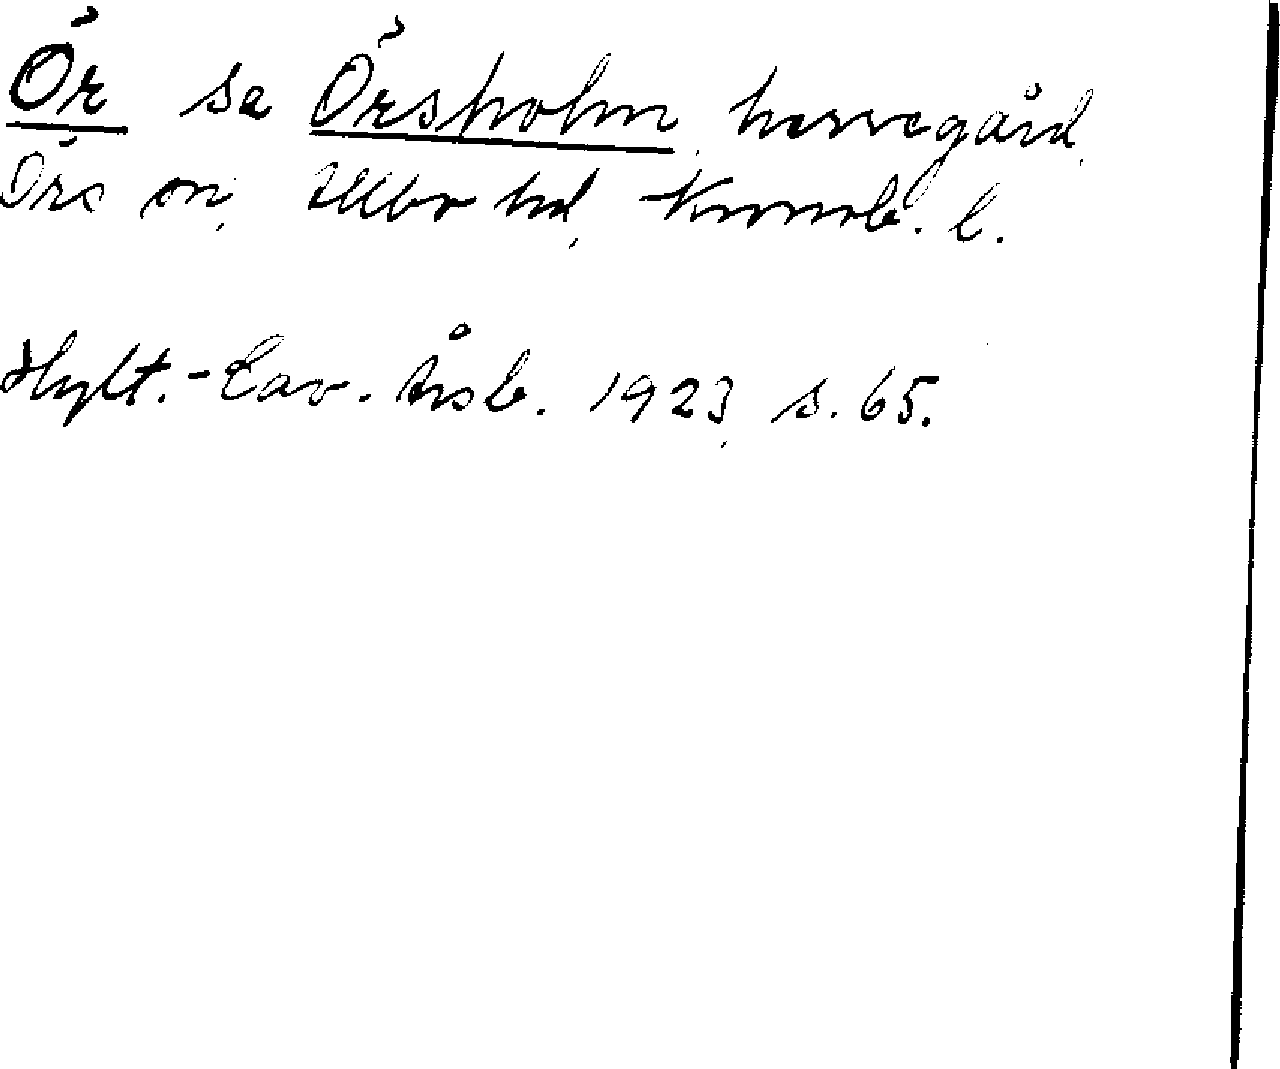 Ör se Örsholm, herregård,
Örs sn, Allbo hd, Kronob. l.
Hylt.-Cav. Årsb. 1923, s. 65.